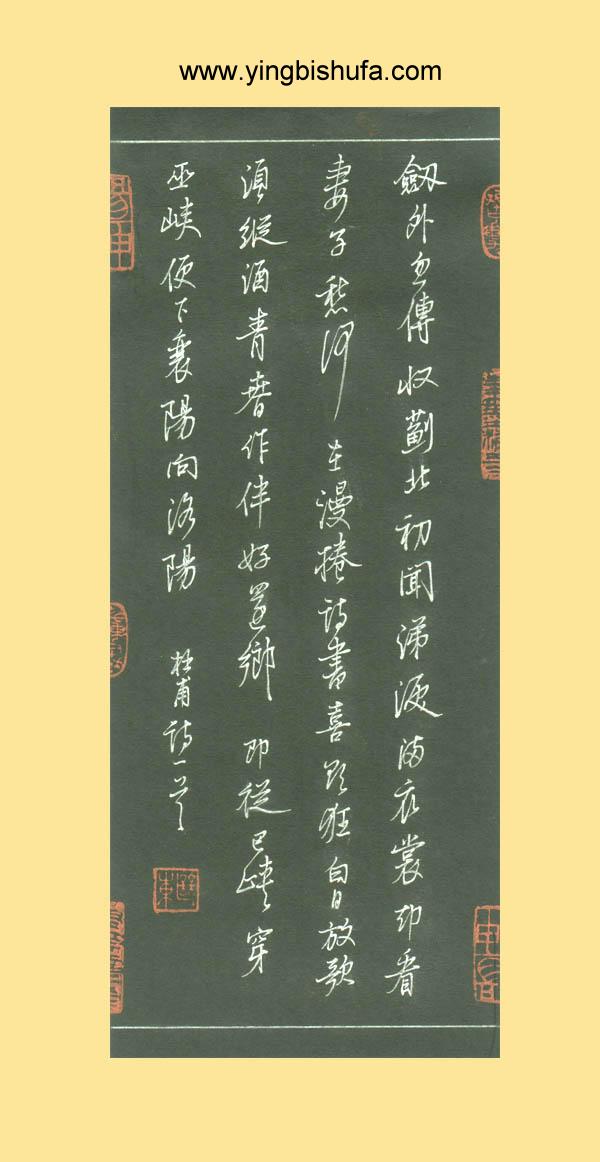 www.yingbishufa.com
劔外忽傳收薊北初聞涕淚滿衣裳却看
妻子愁何在漫捲詩書喜欲狂白日放歌
須縱酒青春作伴好還鄉即從巴峽穿
巫峽便下襄陽向洛陽
杜甫詩一首